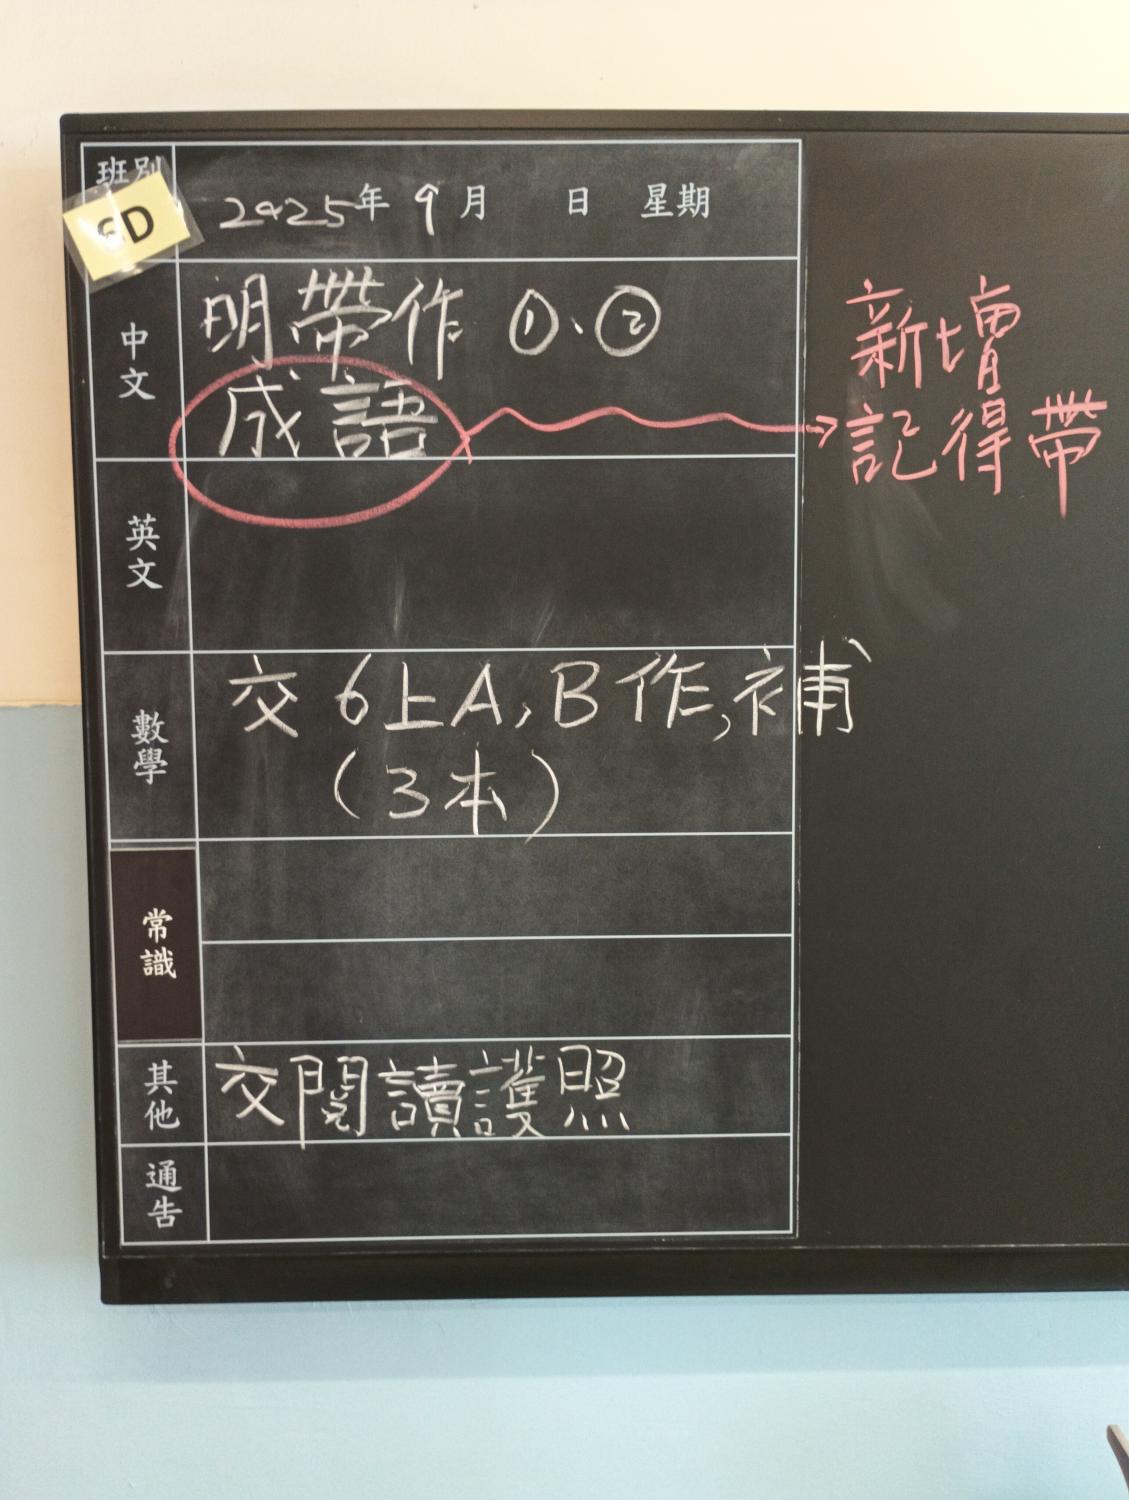 班別
6D
2025年 9月 日 星期
中文
明帶作①、②
成語
新增
記得帶
英文
數學
交 6上A, B 作, 補
(3本)
常識
其他
交閱讀護照
通告